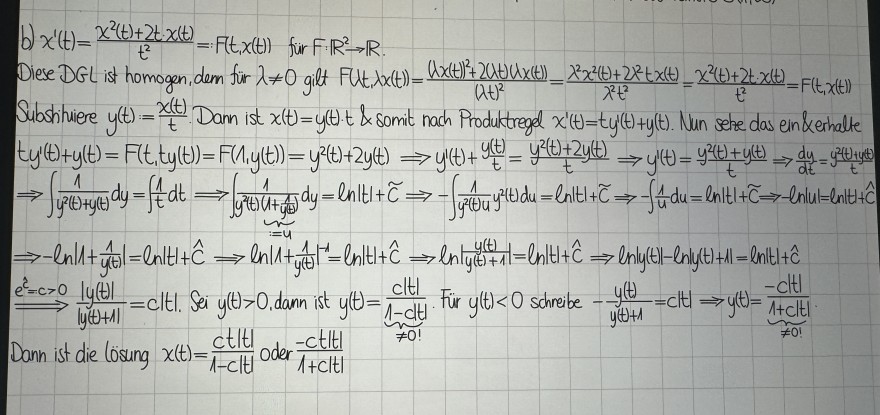 b) x'(t) = (x²(t)+2t·x(t))/t² =: F(t,x(t)) für F: ℝ²→ℝ.
Diese DGL ist homogen, denn für λ≠0 gilt F(λt,λx(t)) = ((λx(t))²+2(λt)(λx(t)))/(λt)² = (λ²x²(t)+2λ²tx(t))/(λ²t²) = (x²(t)+2t·x(t))/t² = F(t,x(t))
Substituiere y(t) := x(t)/t. Dann ist x(t)=y(t)·t & somit nach Produktregel x'(t)=ty'(t)+y(t). Nun sehe das ein & erhalte
ty'(t)+y(t) = F(t,ty(t)) = F(1,y(t)) = y²(t)+2y(t) ⟹ y'(t)+y(t)/t = (y²(t)+2y(t))/t ⟹ y'(t) = (y²(t)+y(t))/t ⟹ dy/dt = (y²(t)+y(t))/t
⟹ ∫1/(y²(t)+y(t)) dy = ∫1/t dt ⟹ ∫1/(y²(t)(1+1/y(t))) dy = ln|t|+C̃ ⟹ -∫1/(y²(t)u) y²(t)du = ln|t|+C̃ ⟹ -∫1/u du = ln|t|+C̃ ⟹ -ln|u| = ln|t|+Ĉ
:=u
⟹ -ln|1+1/y(t)| = ln|t|+Ĉ ⟹ ln|1+1/y(t)|⁻¹ = ln|t|+Ĉ ⟹ ln|y(t)/(y(t)+1)| = ln|t|+Ĉ ⟹ ln|y(t)|-ln|y(t)+1| = ln|t|+Ĉ
e^Ĉ=c>0 ⟹ |y(t)|/|y(t)+1| = c|t|. Sei y(t)>0, dann ist y(t) = c|t|/(1-c|t|). Für y(t)<0 schreibe -y(t)/(y(t)+1) = c|t| ⟹ y(t) = -c|t|/(1+c|t|).
≠0! ≠0!
Dann ist die Lösung x(t) = ct|t|/(1-c|t|) oder -ct|t|/(1+c|t|)